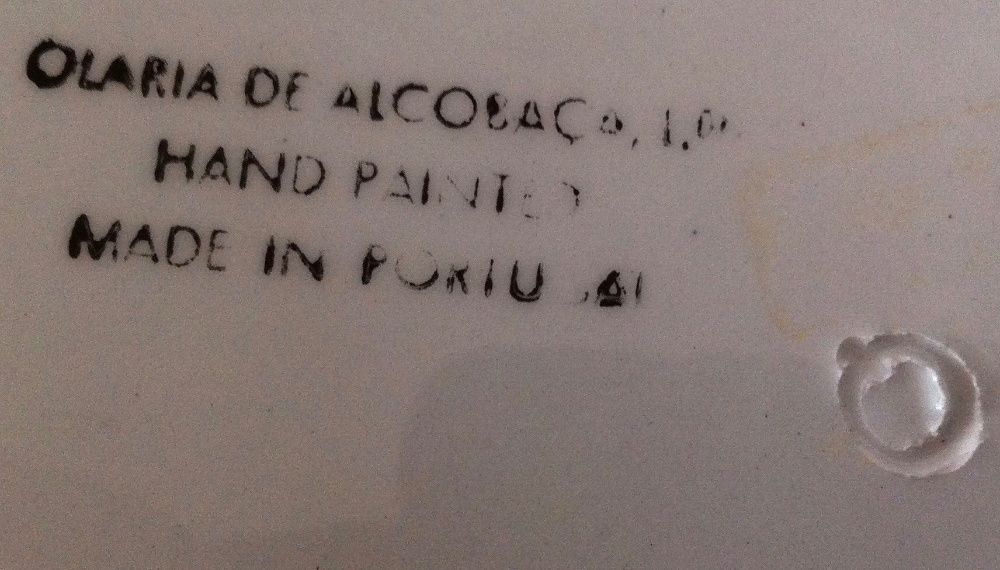 OLARIA DE ALCOBAÇA,
HAND PAINTED
MADE IN PORTUGAL